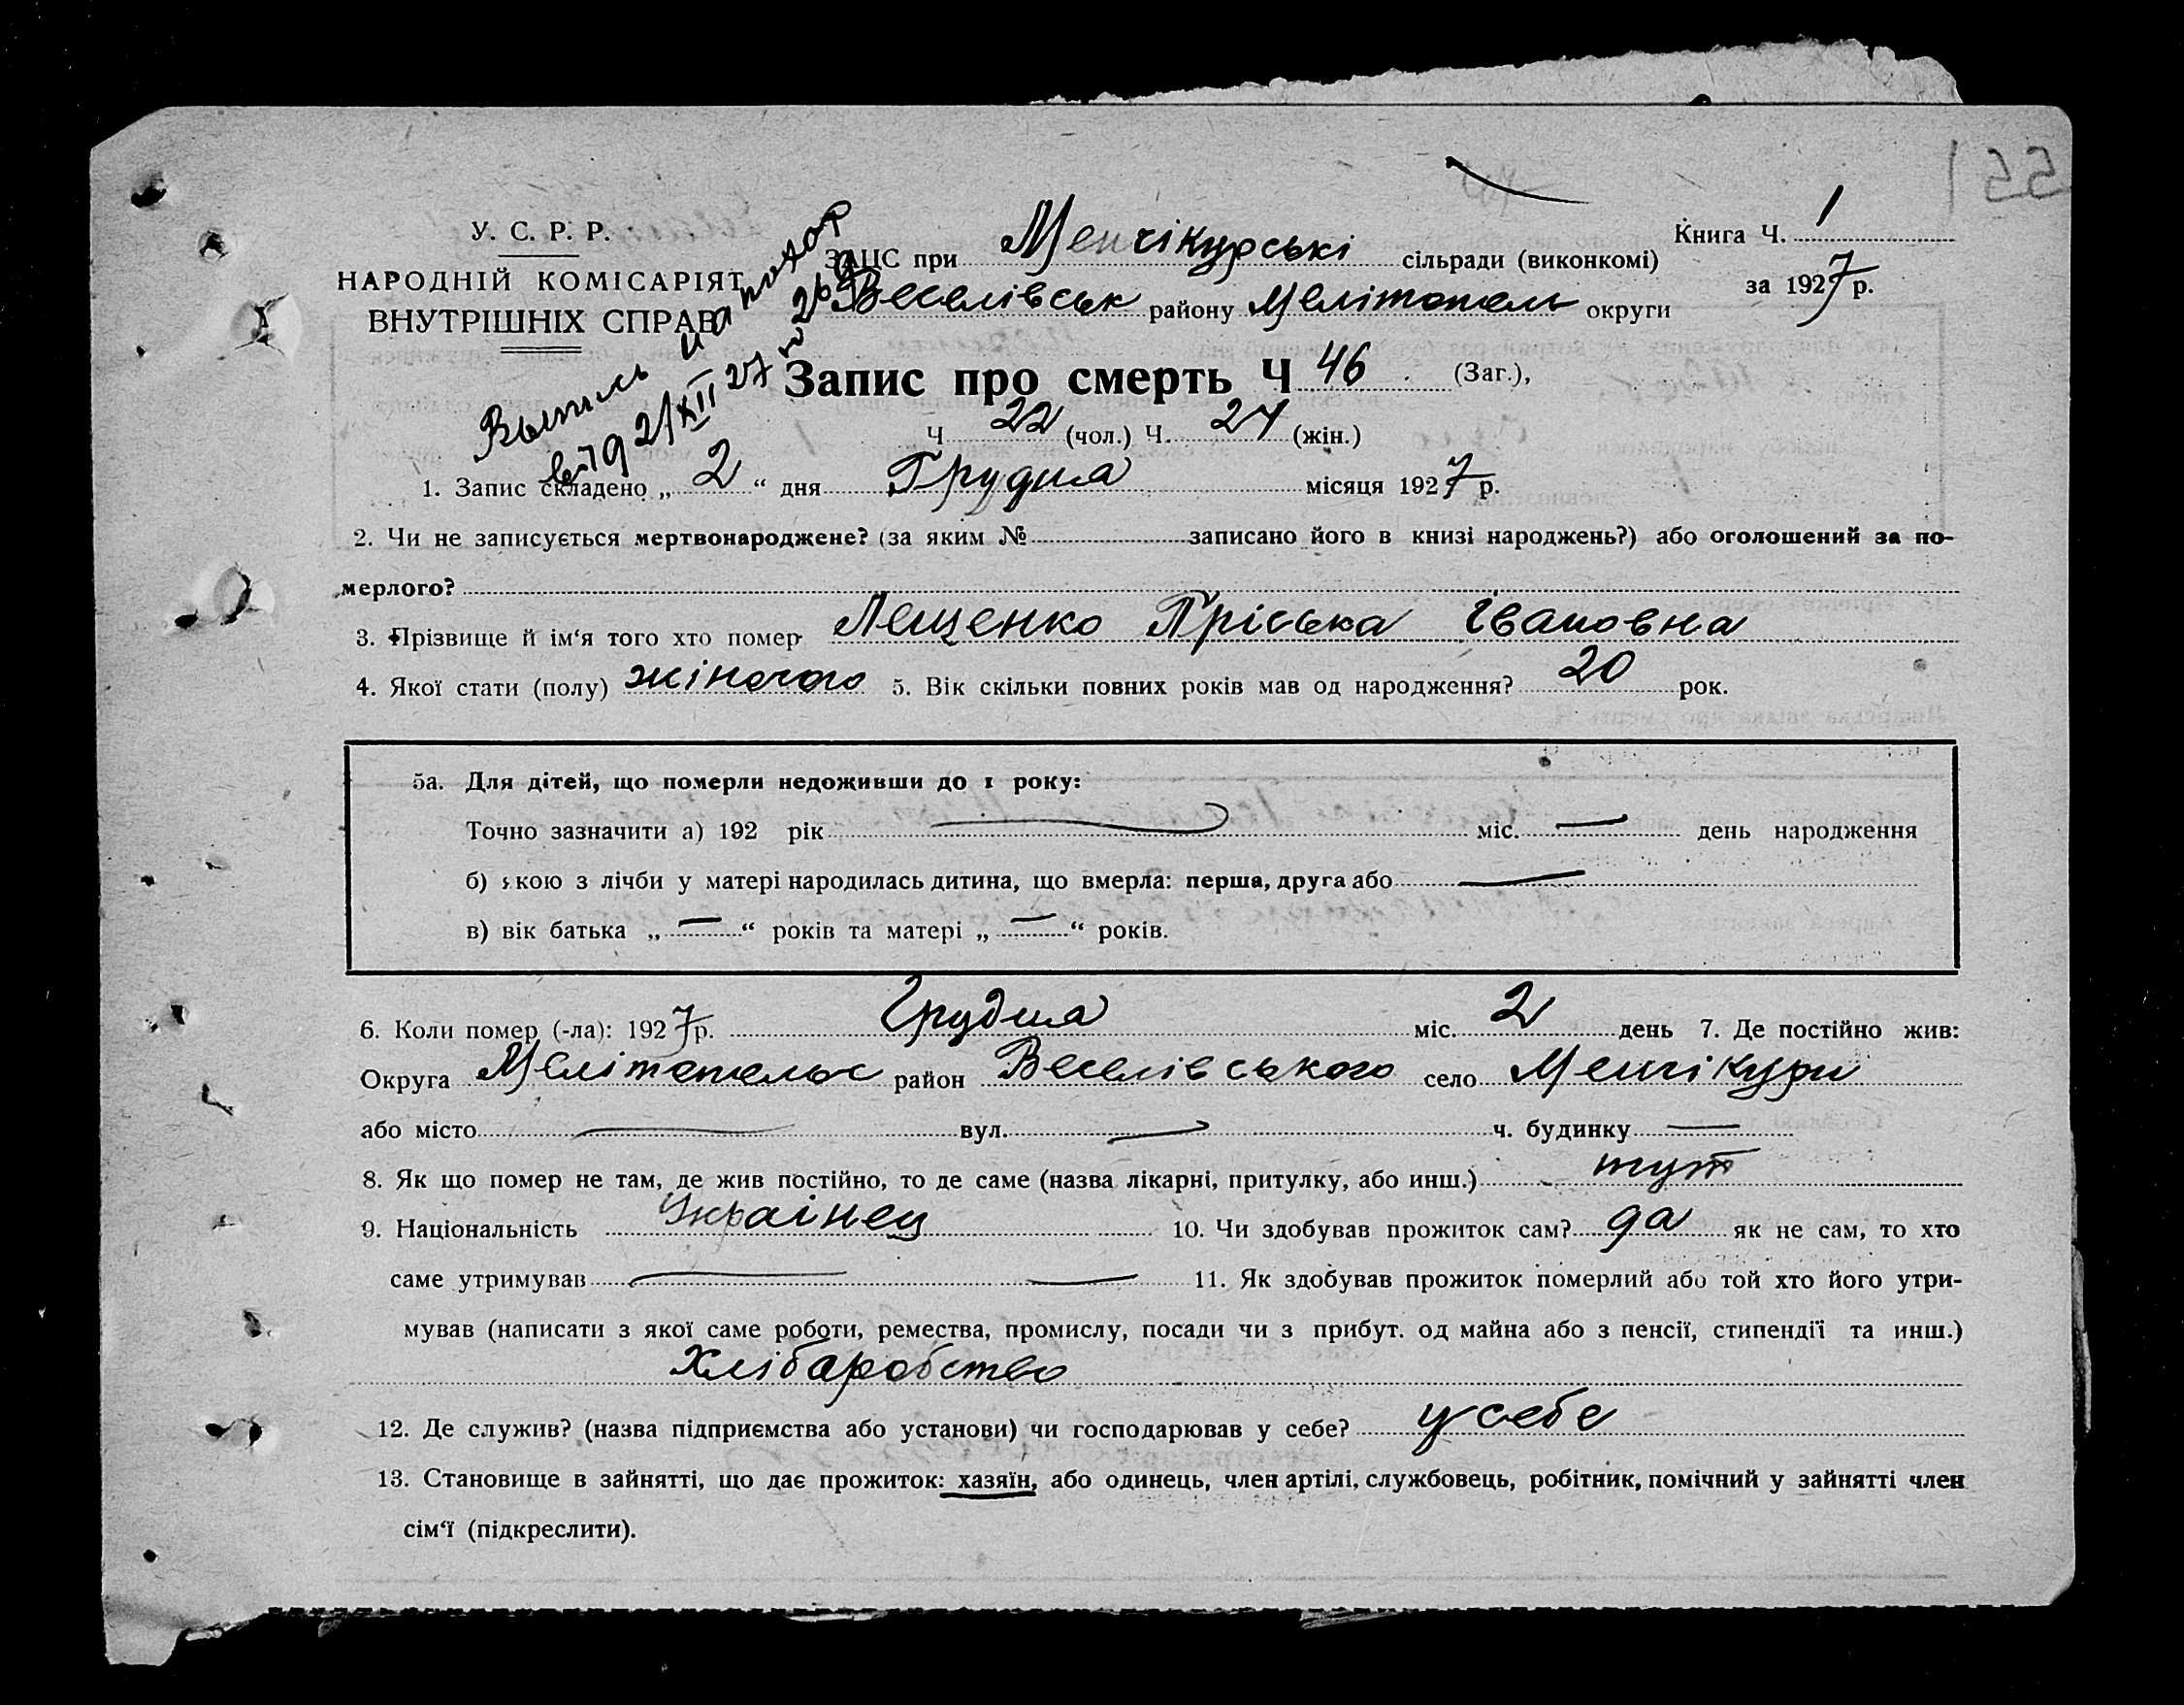 У. С. Р. Р.
НАРОДНІЙ КОМІСАРІЯТ
ВНУТРІШНІХ СПРАВ
Выпись на похор
21/XII 27
ЗАЦС при Менчікурські сільради (виконкомі)
Веселівськ району Мелітополь округи
Книга Ч. 1
за 1927 р.
Запис про смерть Ч 46 (Заг.),
Ч 22 (чол.) Ч. 24 (жін.)
1. Запис складено „ 2 “ дня Грудня місяця 1927 р.
2. Чи не записується мертвонароджене? (за яким № записано його в книзі народжень?) або оголошений за по-
мерлого?
3. Прізвище й ім'я того хто помер Лещенко Пріська Івановна
4. Якої стати (полу) жіночого 5. Вік скільки повних років мав од народження? 20 рок.
5а. Для дітей, що померли недоживши до 1 року:
Точно зазначити а) 192 рік — міс. — день народження
б) якою з лічби у матері народилась дитина, що вмерла: перша, друга або —
в) вік батька „ — “ років та матері „ — “ років.
6. Коли помер (-ла): 1927 р. Грудня міс. 2 день 7. Де постійно жив:
Округа Мелітопольс район Веселівського село Менчікури
або місто — вул. — ч. будинку —
8. Як що помер не там, де жив постійно, то де саме (назва лікарні, притулку, або инш.) тут
9. Національність Українец 10. Чи здобував прожиток сам? да як не сам, то хто
саме утримував — — 11. Як здобував прожиток померлий або той хто його утри-
мував (написати з якої саме роботи, ремества, промислу, посади чи з прибут. од майна або з пенсії, стипендії та инш.)
Хлібаробство
12. Де служив? (назва підприємства або установи) чи господарював у себе? у себе
13. Становище в зайнятті, що дає прожиток: хазяїн, або одинець, член артілі, службовець, робітник, помічний у зайнятті член
сім'ї (підкреслити).